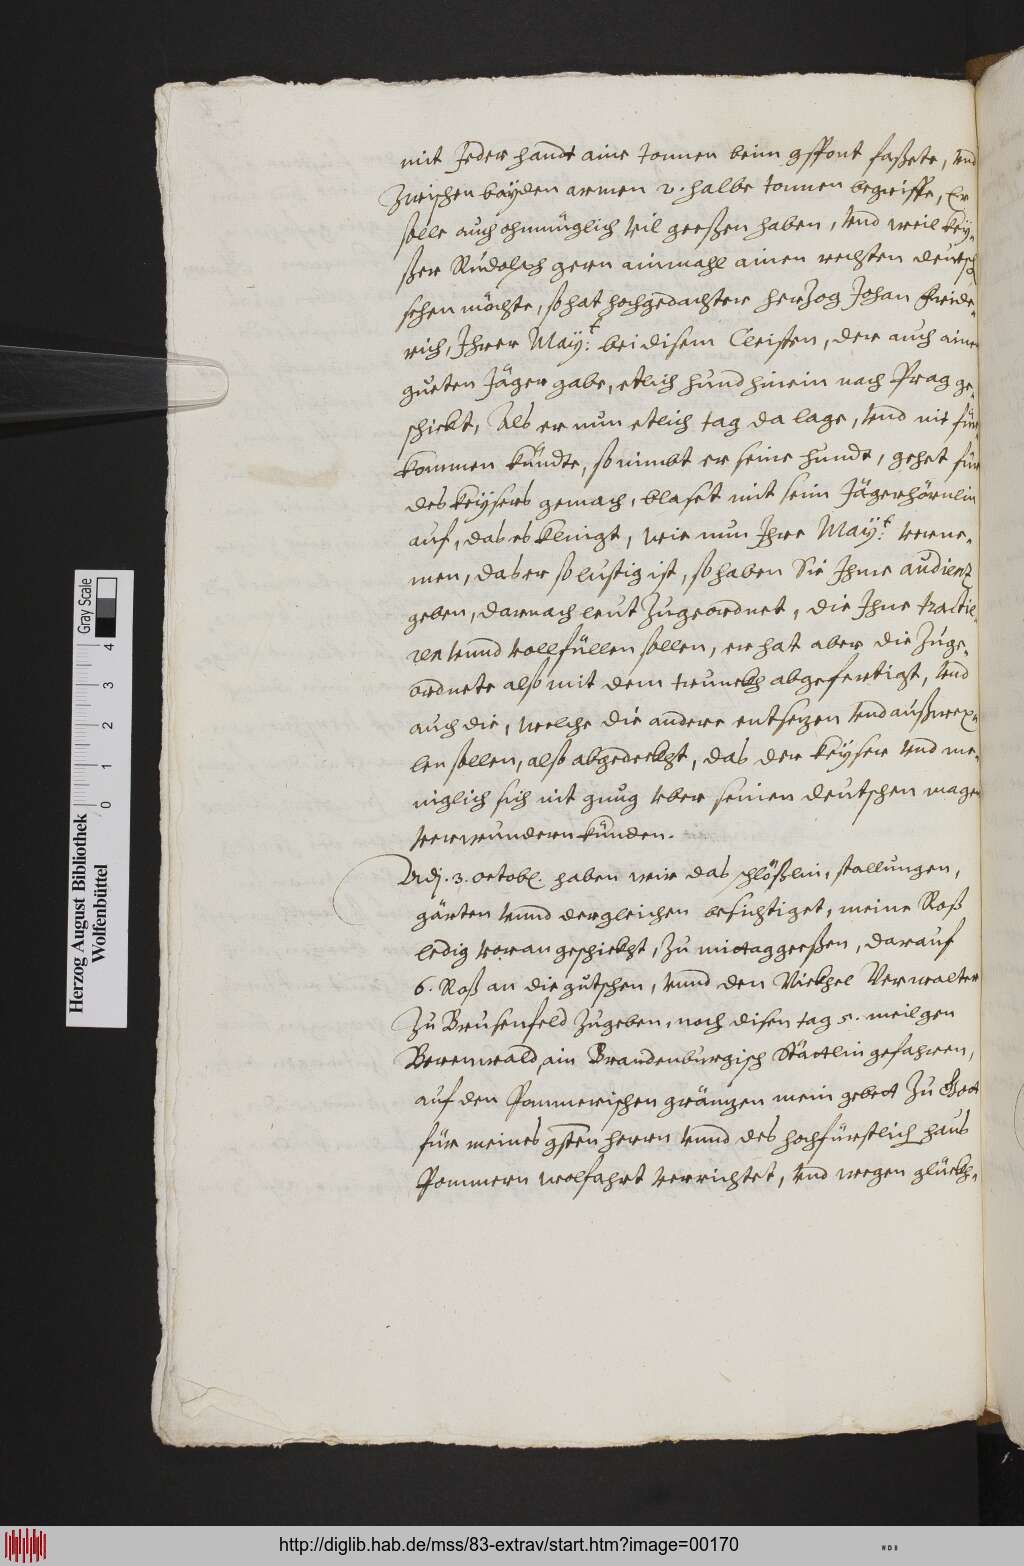 mit Jeder handt aine tonnen beim gspont faßete, Vnd
Zwischen bayden armen 2. halbe tonnen begriffe, Er
solle auch ohnmüglich Vil geeßen haben, Vnd weil Key-
ßer Rudolph gern ainmahl ainen rechten deutsch
sehen möchte, so hat hochgedachter herZog Johan Fride-
rich, Ihrer May:t bei disem Cleisten, der auch ainen
gueten Jäger gabe, etlich hund hinein nach Prag ge-
schickt, Als er nun etlich tag da lage, Vnd nit für
kommen kündte, so nimbt er seine hundt, gehet für
des Keysers gemach, blaset mit seim Jägerhörnlin
auf, das es klingt, wie nun Ihre May:t verne-
men, das er so lustig ist, so haben Sie Ihme audientz
geben, darnach leut Zugeordnet, die Ihne tractie-
ren Vnnd Vollfüllen sollen, er hat aber die Zuge-
ordnete also mit dem trunckh abgefertigt, Vnd
auch die, welche die andere entsezen Vnd außwex-
len sollen, also abgedeckht, das der Keyser Vnd me-
niglich sich nit gnug Vber seinen deutschen magen
Verwundern künden.
Adj. 3. octob. haben wir das schlößlin, stallungen,
gärten Vnnd dergleichen besichtiget, meine Roß
ledig Voran geschickht, Zu mittag geeßen, darauf
6. Roß an die gutschen, Vnnd den Vickhel Verwalter
Zu Brusenfeld Zugeben, noch disen tag 5. meil gen
Berenwald, ain Brandenburgisch Stättlin gefahren,
auf den Pommerischen gränzen mein gebett Zu Gott
für meines gsten herrn Vnnd des hochfürstlich haus
Pommern wolfahrt Verrichtet, Vnd wegen glückh-
Herzog August Bibliothek
Wolfenbüttel
Gray Scale
0 1 2 3 4
http://diglib.hab.de/mss/83-extrav/start.htm?image=00170